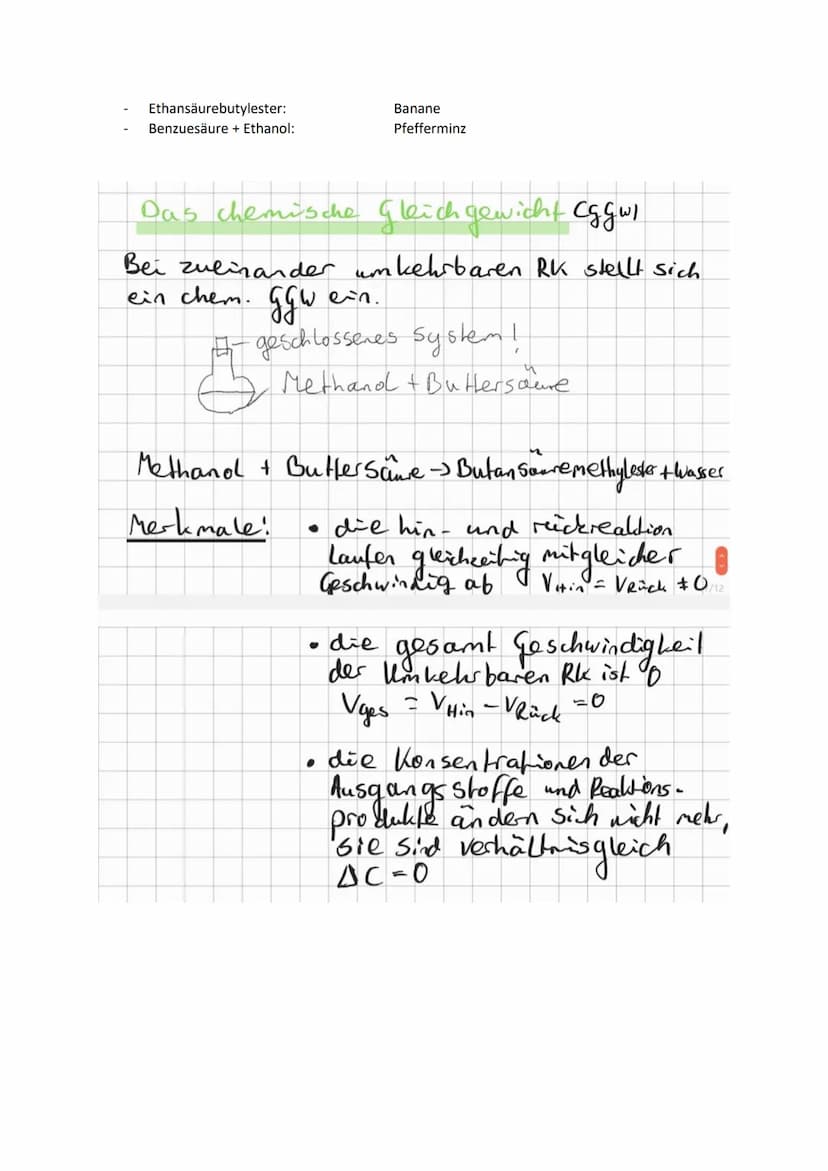 - Ethansäurebutylester: Banane
- Benzuesäure + Ethanol: Pfefferminz
Das chemische Gleichgewicht (ggw)
Bei zueinander umkehrbaren RK stellt sich
ein chem. GGW ein.
geschlossenes System!
Methanol + Buttersäure
Methanol + Buttersäure → Butansäuremethylester + Wasser
Merkmale: • die hin- und rückreaktion
laufen gleichzeitig mit gleicher
Geschwindig ab VHin = VRück ≠ 0
/12
• die gesamt Geschwindigkeit
der Umkehrbaren RK ist 0
Vges = VHin - VRück = 0
• die Konsentrationen der
Ausgangsstoffe und Reaktions-
produkte ändern sich nicht mehr,
sie sind verhältnisgleich
ΔC = 0